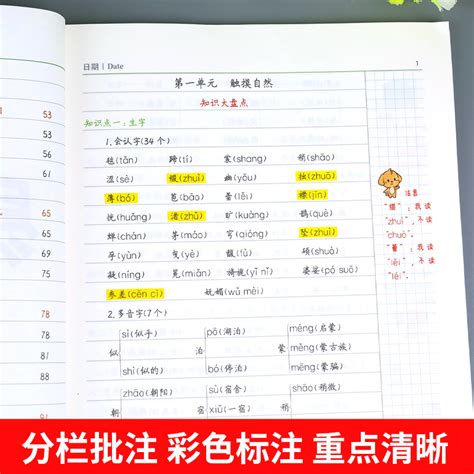 日期 | Date
1
第一单元 触摸自然
知识大盘点
知识点一：生字
1.会认字(34个)
毯(tǎn) 蹄(tí) 裳(shang) 梢(shāo)
涩(sè) 缀(zhuì) 幽(yōu) 拙(zhuō)
薄(bó) 芭(bā) 蕾(lěi) 襟(jīn)
恍(huǎng) 渚(zhǔ) 旷(kuàng) 鹊(què)
蝉(chán) 茅(máo) 穹(qióng) 坠(zhuì)
孕(yùn) 匀(yún) 馥(fù) 硕(shuò)
凝(níng) 冕(miǎn) 旖旎(yǐ nǐ) 婆娑(pó suō)
参差(cēn cī) 妩媚(wǔ mèi)
2.多音字(7个)
似 sì(似乎) shì(似的)
泊 pō(湖泊) bó(停泊)
蒙 méng(启蒙) měng(蒙古族) mēng(蒙骗)
朝 zhāo(朝阳)
宿 sù(宿舍) xiǔ(一宿)
稍 shāo(稍微)
注意
“缀”：我读
“zhuì”，不读
“chuò”。
“蕾”：我读
“lěi”，不读
“léi”。
53
53
78
81
88
分栏批注 彩色标注 重点清晰